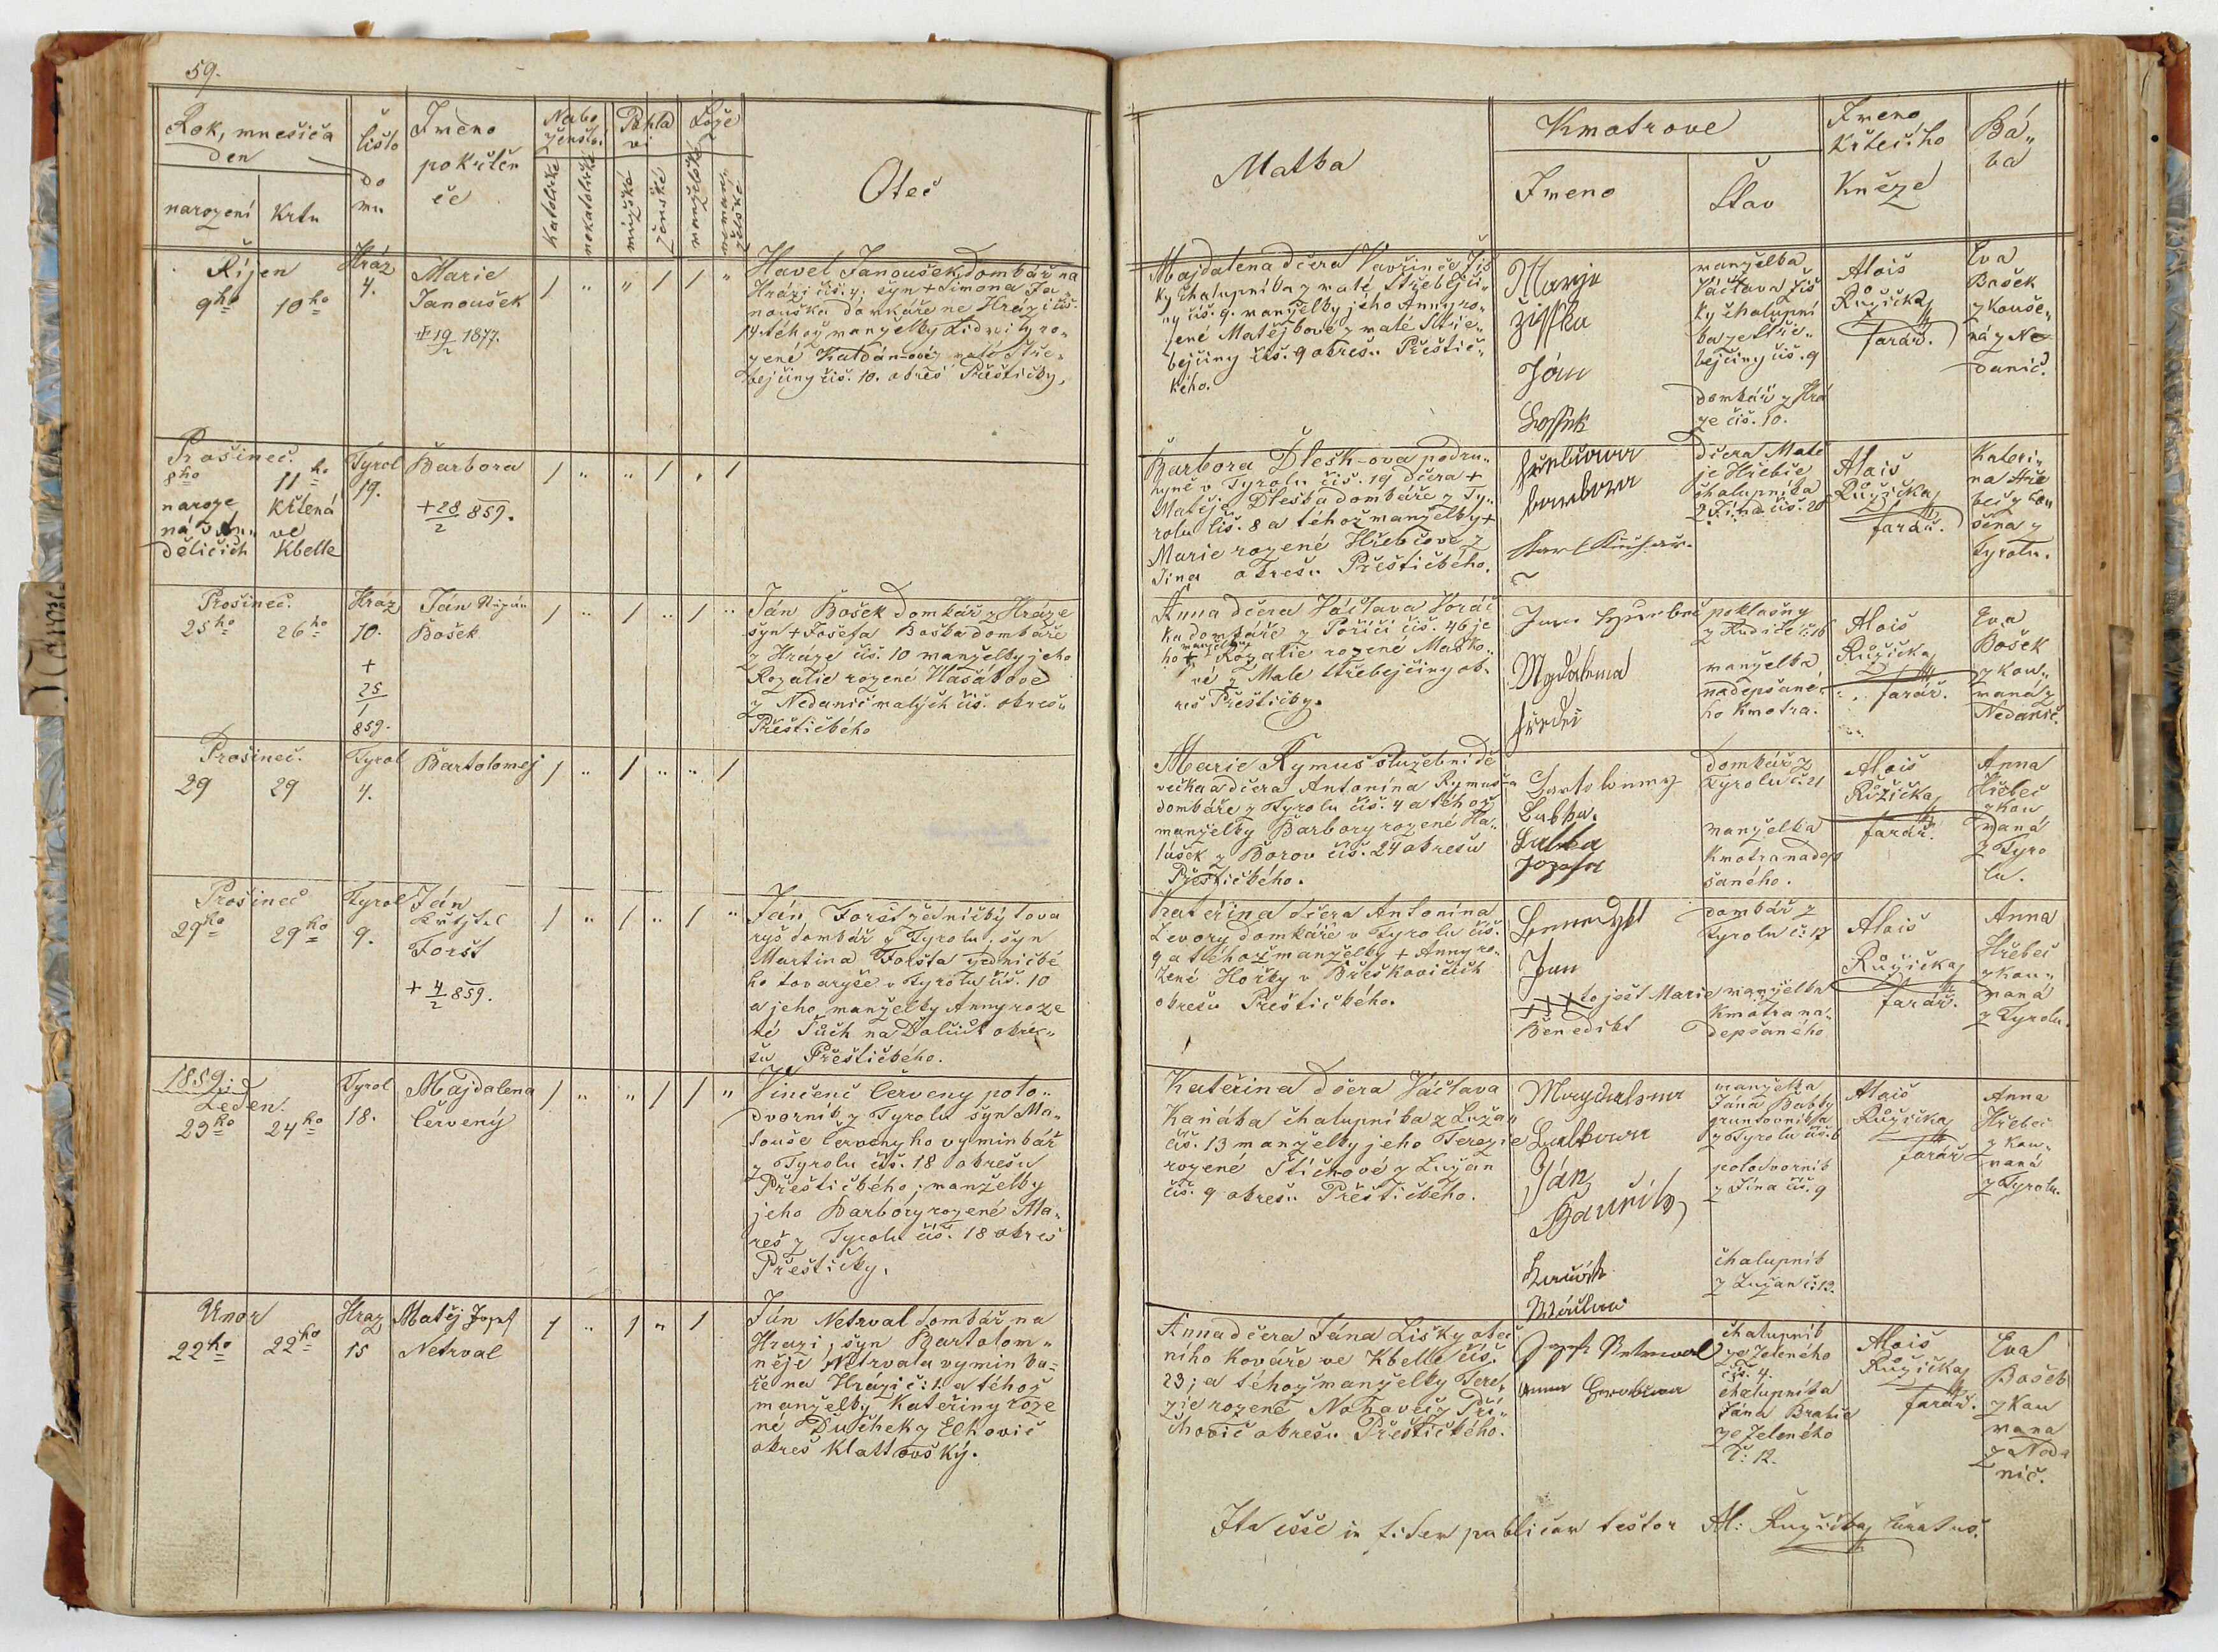 59.
Rok, mnesiča
den
narození
Krtu
čislo
do
mu
Jmeno
pokřtěn
če
Nabo
ženstvi
katolické
nekatolické
Pohla
vi
mužské
ženské
Lože
manželské
nemanž
želské
Oteč
Řijen
9ho
10ho
Hráz
4.
Marie
Janoušek
19/2 1877.
Havel Janoušek, domkář na
Hrázi čis. 4. syn + Simona Ja„
nouška domkáře na Hrázi čis.
14. téhož manželky Lidmily ro„
zené
malé Stře„
bejčiny čis. 10. okres Přeštičky,
Prosineč.
8ho
11ho
naroze
ná v
dětičich
Křtená
ve
Kbelle
Tyrol
19.
Barbora
+ 28/2 859.
Prosineč.
25ho
26ho
Hráz
10.
Ján Štěpán
Bošek
+
25
1
859.
Ján Bošek domkář z Hráze
syn + Josefa Boška domkáře
z Hráze čis. 10 manželky jeho
Rozalie rozené Hlasákové
z Nedanič malých čis. okresu
Přeštičkého
Prosineč.
29
29
Tyrol
4.
Bartolomej
Prosineč
29ho
29ho
Tyrol
9.
Ján
Křtitel
Foršt
+ 4/2 859.
Ján Foršt zedničký tova
ryš domkář z Tyrolu, syn
Martina Foršta zedničké
ho tovaryše v Tyrolu čis. 10
a jeho manželky Anny roze
né Suchna Dolčich okre„
su Přeštičkého.
1859
Leden.
23ho
24ho
Tyrol
18.
Majdalena
Červený
Vinčenč Červeny polo„
dvornik z Tyrolu syn Ma„
touše Červenyho vyminkář
z Tyrolu čis. 18 okresu
Přeštičkého; manželky
jeho Barbory rozené Ma„
reš z Tyrolu čis. 18 okres
Přeštičky.
Unor
22ho
22ho
Hraz
15
Matěj Josef
Netrval
Ján Netrval domkář na
Hrazi, syn Bartolom„
něje Netrvala vyminka„
ře na Hrázi č: 1. a téhož
manželky Kateřiny roze
né Duchek z Elhovič
okres Klattovský.
Matka
Kmotrove
Jmeno
Stav
Jmeno
Křtečiho
Kněze
Bá„
ba
Majdalena dčera Vavřinče Žiš
ky chalupníka z malé Střebejči„
ny čis. 9. manželky jeho Anny ro„
zené Matějkové z malé Stře„
bejčiny čis. 9 okresu Přeštič„
kého.
Marya
Žiſſka
Ján
manželka
Váčlava Žiš
ky chalupní
ka ze Stře„
bejčiny čis. 9
domkář z Hrá
ze čis. 10.
Alois
Růžička
farář.
Eva
Bošek
zkouše„
ná z Ne
danič.
Barbora Dlesk-ova podru„
hyně v Tyrolu čis. 19 dčera +
Matěje Dleska domkáře z Ty„
rolu čis. 8 a téhož manželky +
Marie rozené Hřebčove z
Jina okresu Přeštičkého.
barbora
dčera Matě
je Hřebče
chalupníka
z Jina čis. 20
Alois
Růžička
farář.
Kateři„
na Hře
beč zkou
šena z
Tyrolu.
Anna dčera Váčlava Horáč
ka domkáře z Poříči čis. 46 je
ho + manželky Rozalie rozené Maško„
vé z Male Střebejčiny ok„
res Přeštičky.
Jan
Magdalena
pokłasny
z Rudiče č: 16
manželka
nadepsané„
ho kmotra.
Alois
Růžička
farář.
Eva
Bošek
zkou„
maná z
Nedanič.
Marie Rymus služebni dě
večka a dčera Antonína Rymusa
domkáře z Tyrolu čis. 4 a téhož
manželky Barbory rozené Ha„
lušek z Borov čis. 24 okresu
Přeštičkého.
Bartolomej
Babka.
Babka
Jozefa
domkář z
Tyrolu č: 21
manželka
kmotra nadep
saného.
Alois
Růžička
farář.
Anna
Hřebeč
zkou
maná
z Tyro
lu.
Kateřina dčera Antonína
Zevory domkáře v Tyrolu čis.
9 a téhož manželky + Anny ro„
zené Horky v Břeskovičich
okresu Přeštičkého.
Benedykt
Jan
xxx to jest Marie
Benedikt
domkář z
Tyrolu č: 17
manželka
kmotra na„
depsaného
Alois
Růžička
farář.
Anna
Hřebeč
zkou„
maná
z Tyrolu.
Kateřina dčera Váčlava
Kaňáka chalupníka z Lužan
čis. 13 manželky jeho Terezie
rozené Stichové z Lužan
čis. 9 okresu Přeštičkého.
Magdalena
Babkova
Ján
manželka
Jána Babky
gruntovníka
z Tyrolu čis. 6
polodvornik
z Jina čis. 9
chalupník
z Lužan č: 13.
Alois
Růžička
farář
Anna
Hřebeč
zkou„
maná
z Tyrolu.
Anna dčera Jána Lišky obec
ního kováře ve Kbelle čis.
23; a téhož manželky Tere„
zie rozené Nohaveč z Při„
chovič okresu Přeštičkého.
Josef Netrwal
anna
chalupník
ze Zeleného
čis. 4.
chalupníka
Jána Brabče
ze Zeleného
č: 12.
Alois
Růžička
farář.
Eva
Bošek
zkou
mana
z Neda
nič.
Ita esse in fidem publicam testor Al: Růžička curatus.